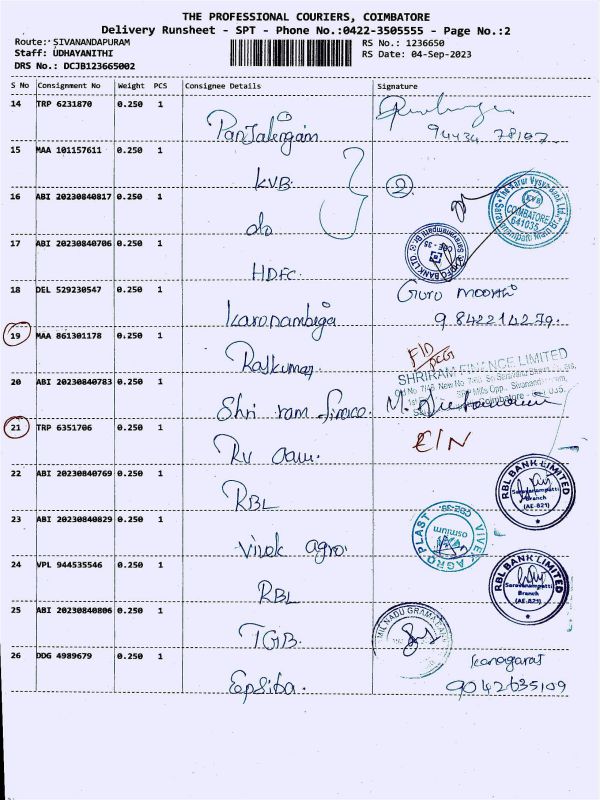 THE PROFESSIONAL COURIERS, COIMBATORE
Delivery Runsheet - SPT - Phone No.:0422-3505555 - Page No.:2
Route: SIVANANDAPURAM RS No.: 1236650
Staff: UDHAYANITHI RS Date: 04-Sep-2023
DRS No.: DCJB123665002
S No Consignment No Weight PCS Consignee Details Signature
14 TRP 6231870 0.250 1
Panjalingam 94434 78197
15 MAA 101157611 0.250 1
KVB
16 ABI 20230840817 0.250 1 2
do COIMBATORE 641035
17 ABI 20230840706 0.250 1
HDFC
18 DEL 529230547 0.250 1 Guru moorthi
Karpnambiga 9842214279
19 MAA 861301178 0.250 1
Rajkumar SHRIRAM FINANCE LIMITED
20 ABI 20230840783 0.250 1
Shri ram finace.
21 TRP 6351706 0.250 1 E/N
22 ABI 20230840769 0.250 1 RBL BANK LIMITED
RBL Saravanampatti Branch (AE-821)
23 ABI 20230840829 0.250 1
Vivek agro. VIVEK AGRO PLAST
24 VPL 944535546 0.250 1 RBL BANK LIMITED
RBL Saravanampatti Branch (AE-821)
25 ABI 20230840806 0.250 1
TGB. TAMIL NADU GRAMA
26 DDG 4989679 0.250 1 Kanagaraj
Epsiba. 9042635109